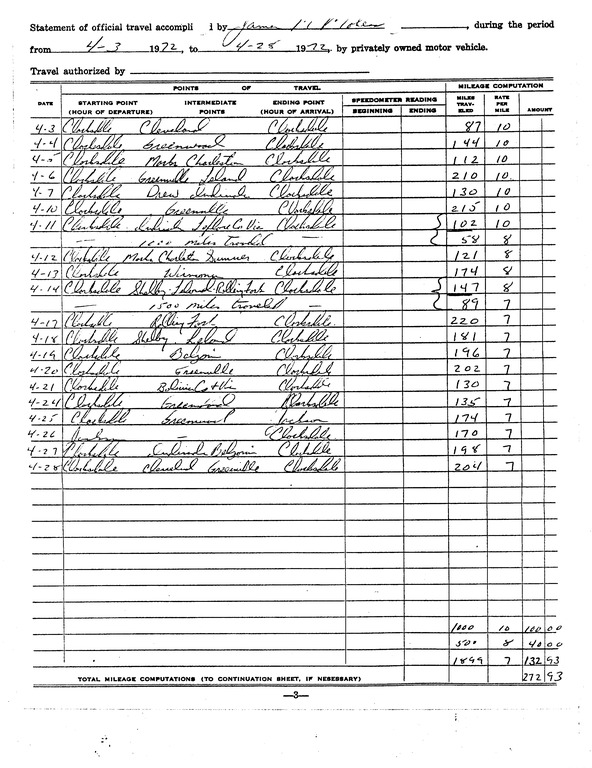 Statement of official travel accompli d by James , during the period
from 4-3 1972, to 4-28 1972, by privately owned motor vehicle.
Travel authorized by
POINTS OF TRAVEL MILEAGE COMPUTATION
DATE STARTING POINT (HOUR OF DEPARTURE) INTERMEDIATE POINTS ENDING POINT (HOUR OF ARRIVAL) SPEEDOMETER READING BEGINNING ENDING MILES TRAV- ELED RATE PER MILE AMOUNT
4-3 Clarksdale Cleveland Clarksdale 87 10
4-4 Clarksdale Greenwood Clarksdale 144 10
4-5 Clarksdale Marks Charleston Clarksdale 112 10
4-6 Clarksdale Greenville Leland Clarksdale 210 10
4-7 Clarksdale Drew Indianola Clarksdale 130 10
4-10 Clarksdale Greenville Clarksdale 215 10
4-11 Clarksdale Indianola Leflore Co Via Clarksdale 102 10
— 1000 miles traveled — 58 8
4-12 Clarksdale Marks Charleston Sumner Clarksdale 121 8
4-13 Clarksdale Winona Clarksdale 174 8
4-14 Clarksdale Shelby-Leland-Rolling Fork Clarksdale 147 8
— 1500 miles traveled — 89 7
4-17 Clarksdale Rolling Fork Clarksdale 220 7
4-18 Clarksdale Shelby, Leland Clarksdale 181 7
4-19 Clarksdale Belzoni Clarksdale 196 7
4-20 Clarksdale Greenville Clarksdale 202 7
4-21 Clarksdale Bolivar Co Via Clarksdale 130 7
4-24 Clarksdale Greenwood Clarksdale 135 7
4-25 Clarksdale Greenwood Jackson 174 7
4-26 Jackson — Clarksdale 170 7
4-27 Clarksdale Indianola Belzoni Clarksdale 198 7
4-28 Clarksdale Cleveland Greenville Clarksdale 204 7
1000 10 100 00
500 8 40 00
1899 7 132 93
TOTAL MILEAGE COMPUTATIONS (TO CONTINUATION SHEET, IF NESESSARY) 272 93
—3—